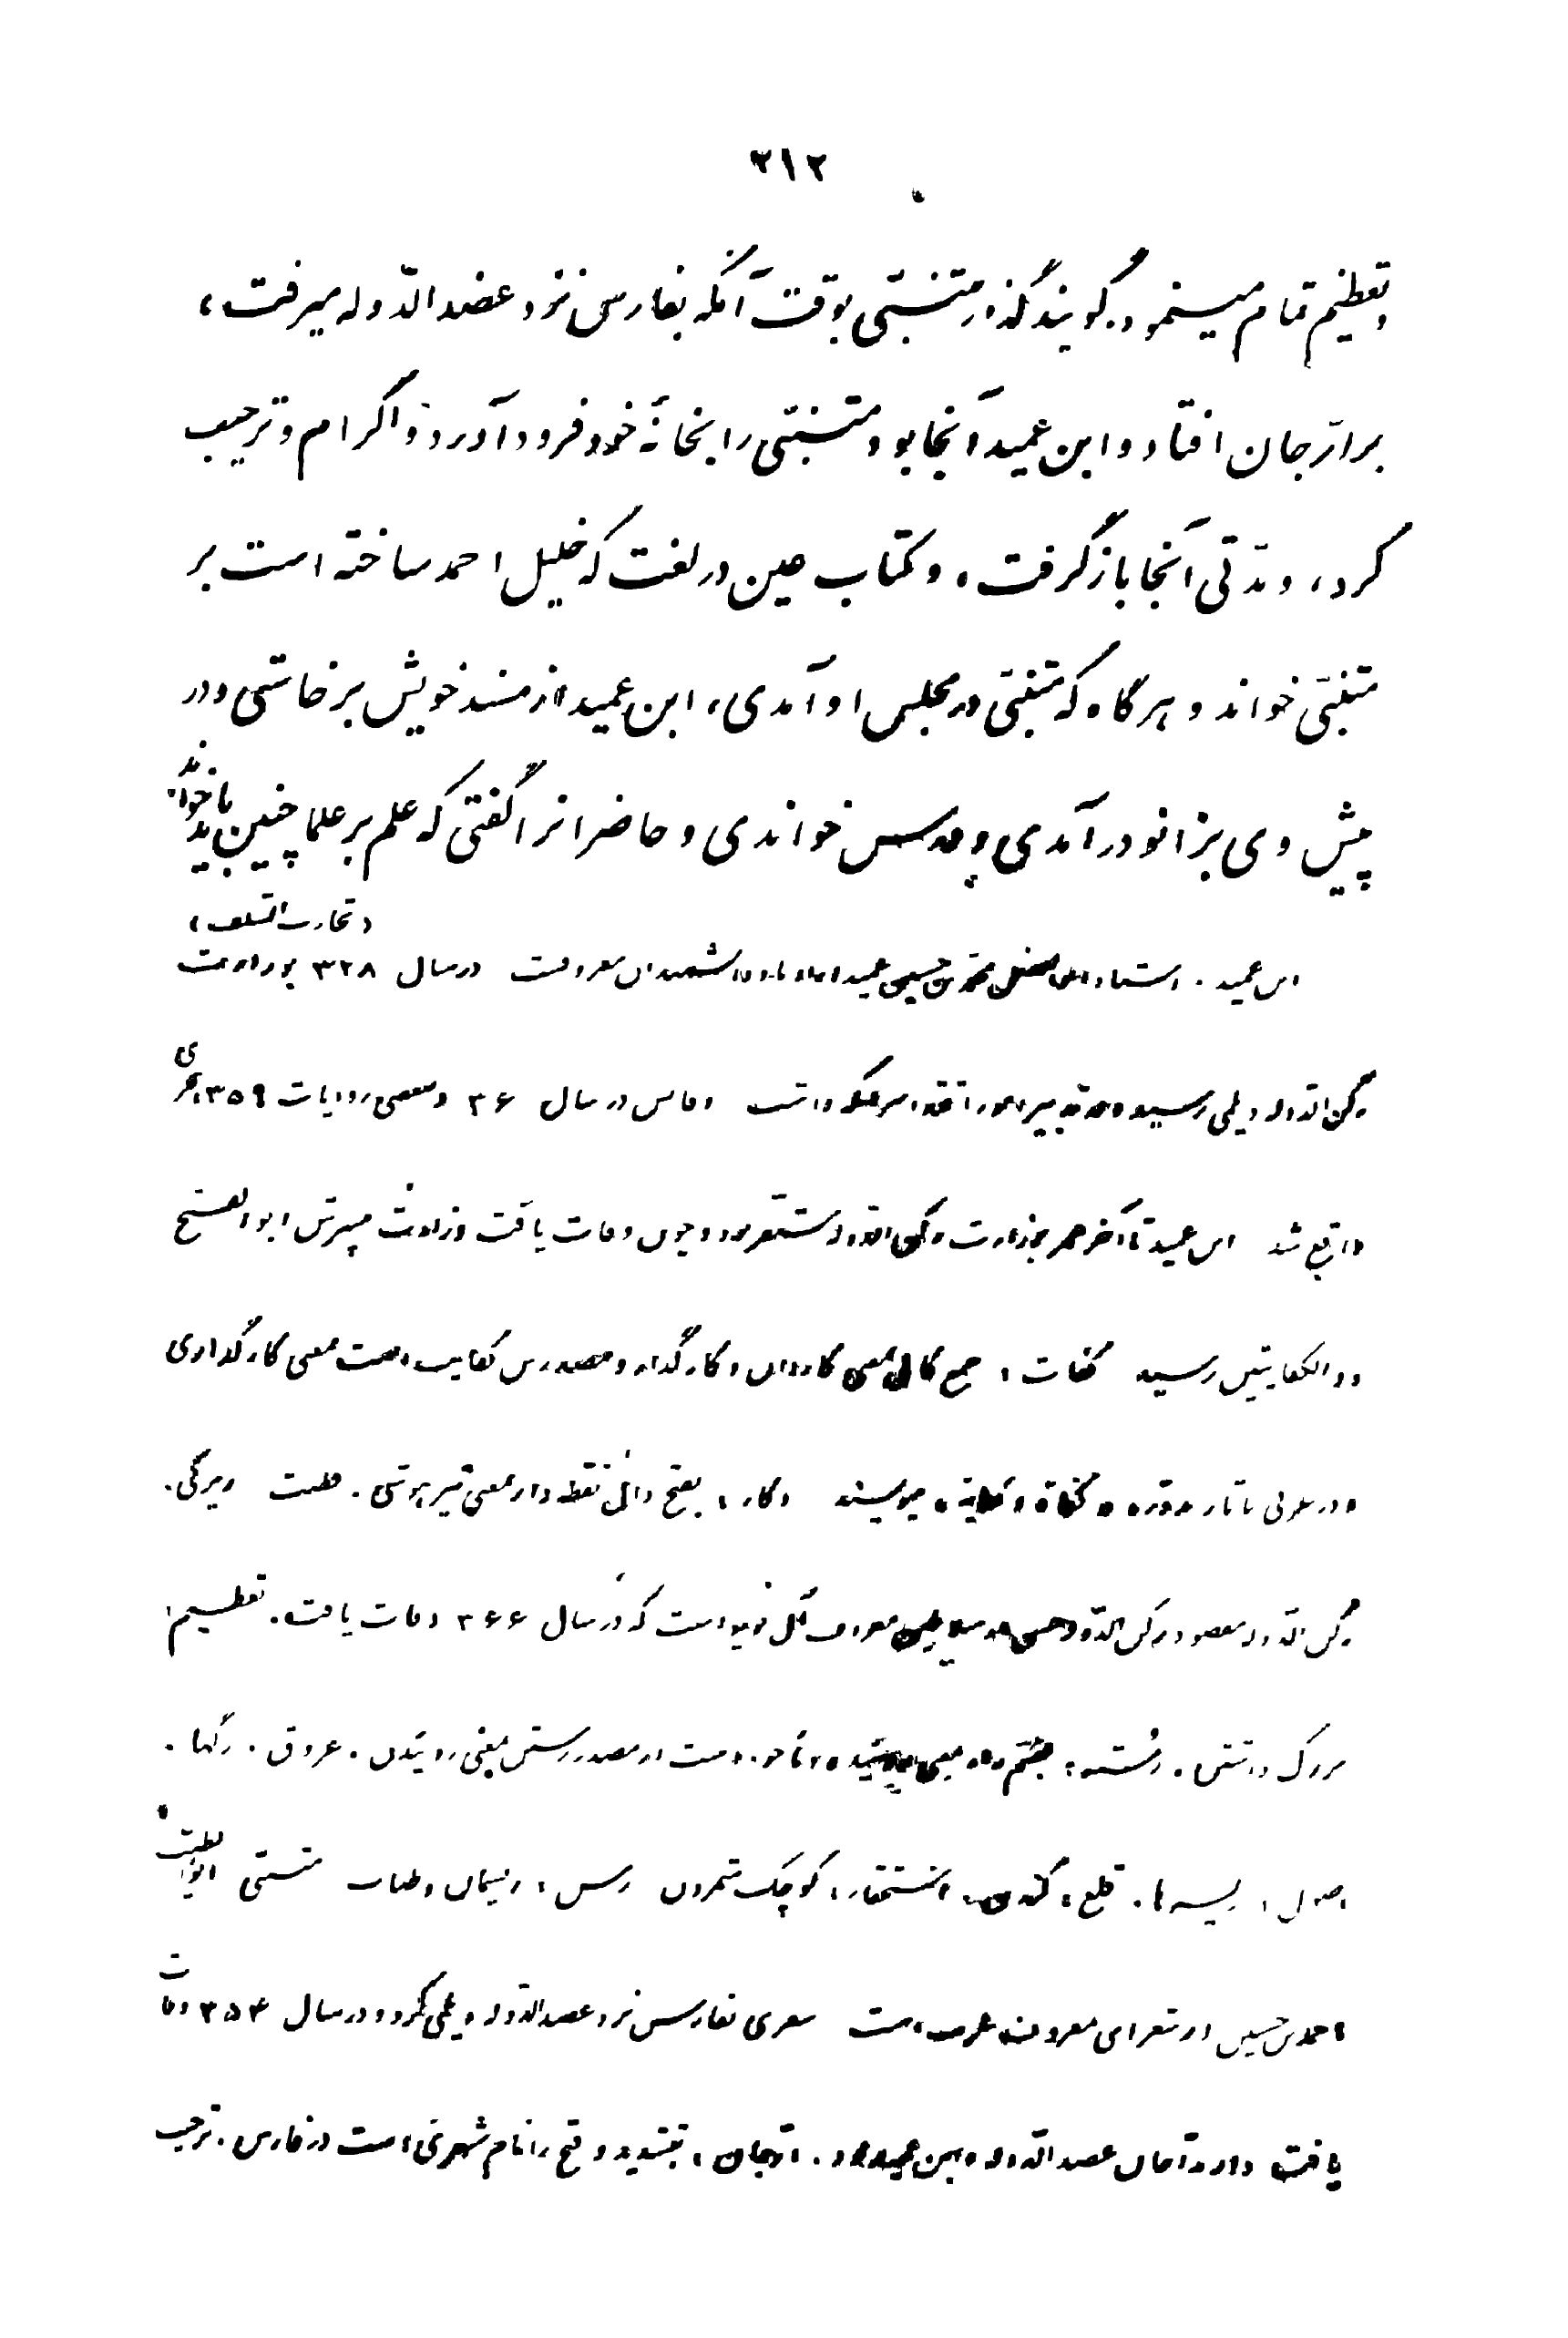 ۳۱۲
و تعظیم تمام مینمود. گویند گذر متنبّی بوقت آنکه بفارس نزد عضدالدّوله میرفت،
بر ارّجان افتاد و ابن عمید آنجا بود متنبّی را بخانهٔ خود فرود آورد و اکرام و ترحیب
کرد، و مدّتی آنجا بازگرفت. و کتاب عین در لغت که خلیل احمد ساخته است بر
متنبّی خواند و هر گاه که متنبّی در مجلس او آمدی، ابن عمید از مسند خویش برخاستی و در
پیش وی بزانو در آمدی و خواندی و حاضرانرا گفتی که علم بر علما چنین باید خواند
(تجارب السّلف)
ابن عمید. استاد محمّد بن حسین عمید معروفست در سال ۳۲۸ بوزارت
رکن الدّوله دیلمی رسید و در سال ۳۶ و بعضی روایات ۳۵۹ هجری
واقع شد ابن عمید تا آخر عمر بوزارت رکن الدّوله مستقر بود و چون وفات یافت وزارت بپسرش ابوالفتح
ذوالکفایتین رسید کفات، جمع کافی بمعنی کاردان و کارگذار و مصدرش کفایت است بمعنی کارگذاری
و در عربی با تاء مدوّره کفاة و کفایة مینویسند بفتح دال نقطه دار بمعنی
رکن الدّوله مقصود رکن الدّوله حسن بن بویه است که در سال ۳۶۶ وفات یافت. تعظیم،
بزرگ داشتن. رُسته، است از مصدر رستن بمعنی روئیدن. عروق. رگها.
اصول، ریشه ها. قلع، کندن. استحقار، کوچک شمردن رسن، ریسمان و طناب متنبّی ابوالطیّب
احمد بن حسین از شعرای معروف عرب است سفری بفارس نزد عضدالدّوله دیلمی کرد و در سال ۳۵۴ وفات
یافت عضدالدّوله و ابن عمید بود. ارّجان، بتشدید و فتح را نام شهری است در فارس. ترحیب